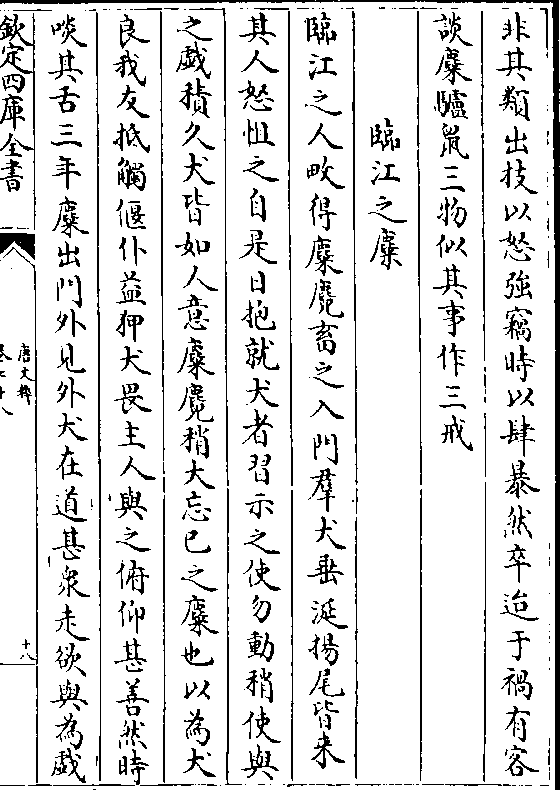 非其類出技以怒強竊時以肆暴然卒迨于禍有客
談麋驢鼠三物似其事作三戒
臨江之麋
臨江之人畋得麋麑畜之入門羣犬垂涎揚尾皆来
其人怒怛之自是日抱就犬者習示之使勿動稍使與
之戲積久犬皆如人意麋麑稍大忘已之麋也以為犬
良我友抵觸偃仆益狎犬畏主人與之俯仰甚善然時
啖其舌三年麋出門外見外犬在道甚衆走欲與為戲
欽定四庫全書
唐文粹
十八